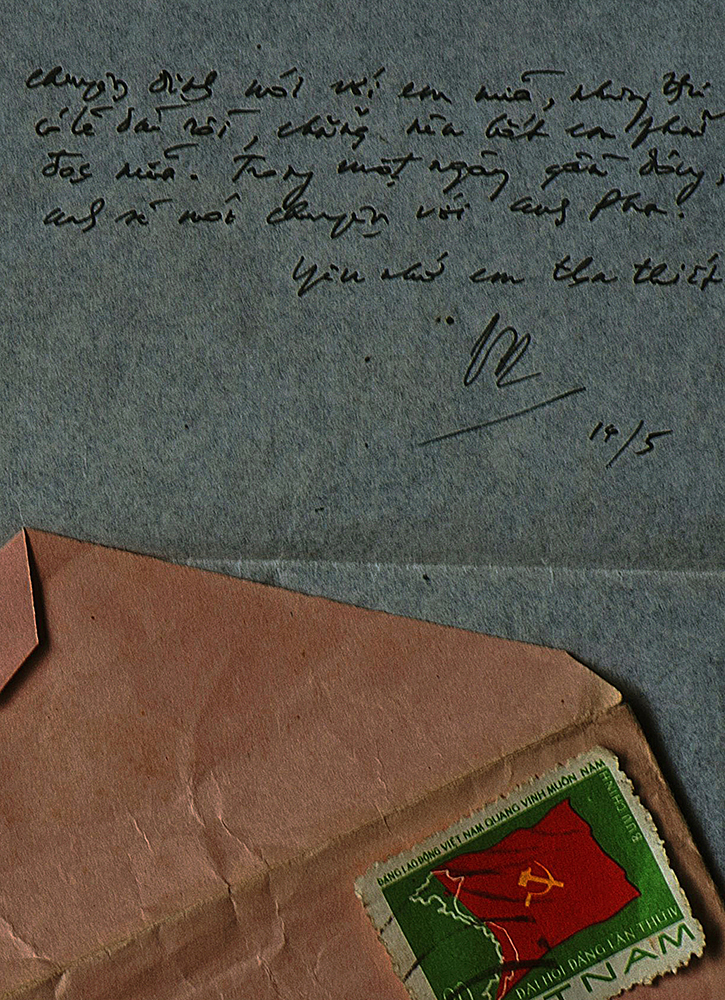 chuyện định nói với em nữa, nhưng thôi
có lẽ dài rồi, chẳng nên bắt em phải
đọc nữa. Trong một ngày gần đây,
anh sẽ nói chuyện với anh Pha.
Yêu nhớ em tha thiết
14/5
ĐẢNG LAO ĐỘNG VIỆT NAM QUANG VINH MUÔN NĂM
BƯU CHÍNH
ĐẠI HỘI ĐẢNG LẦN THỨ IV